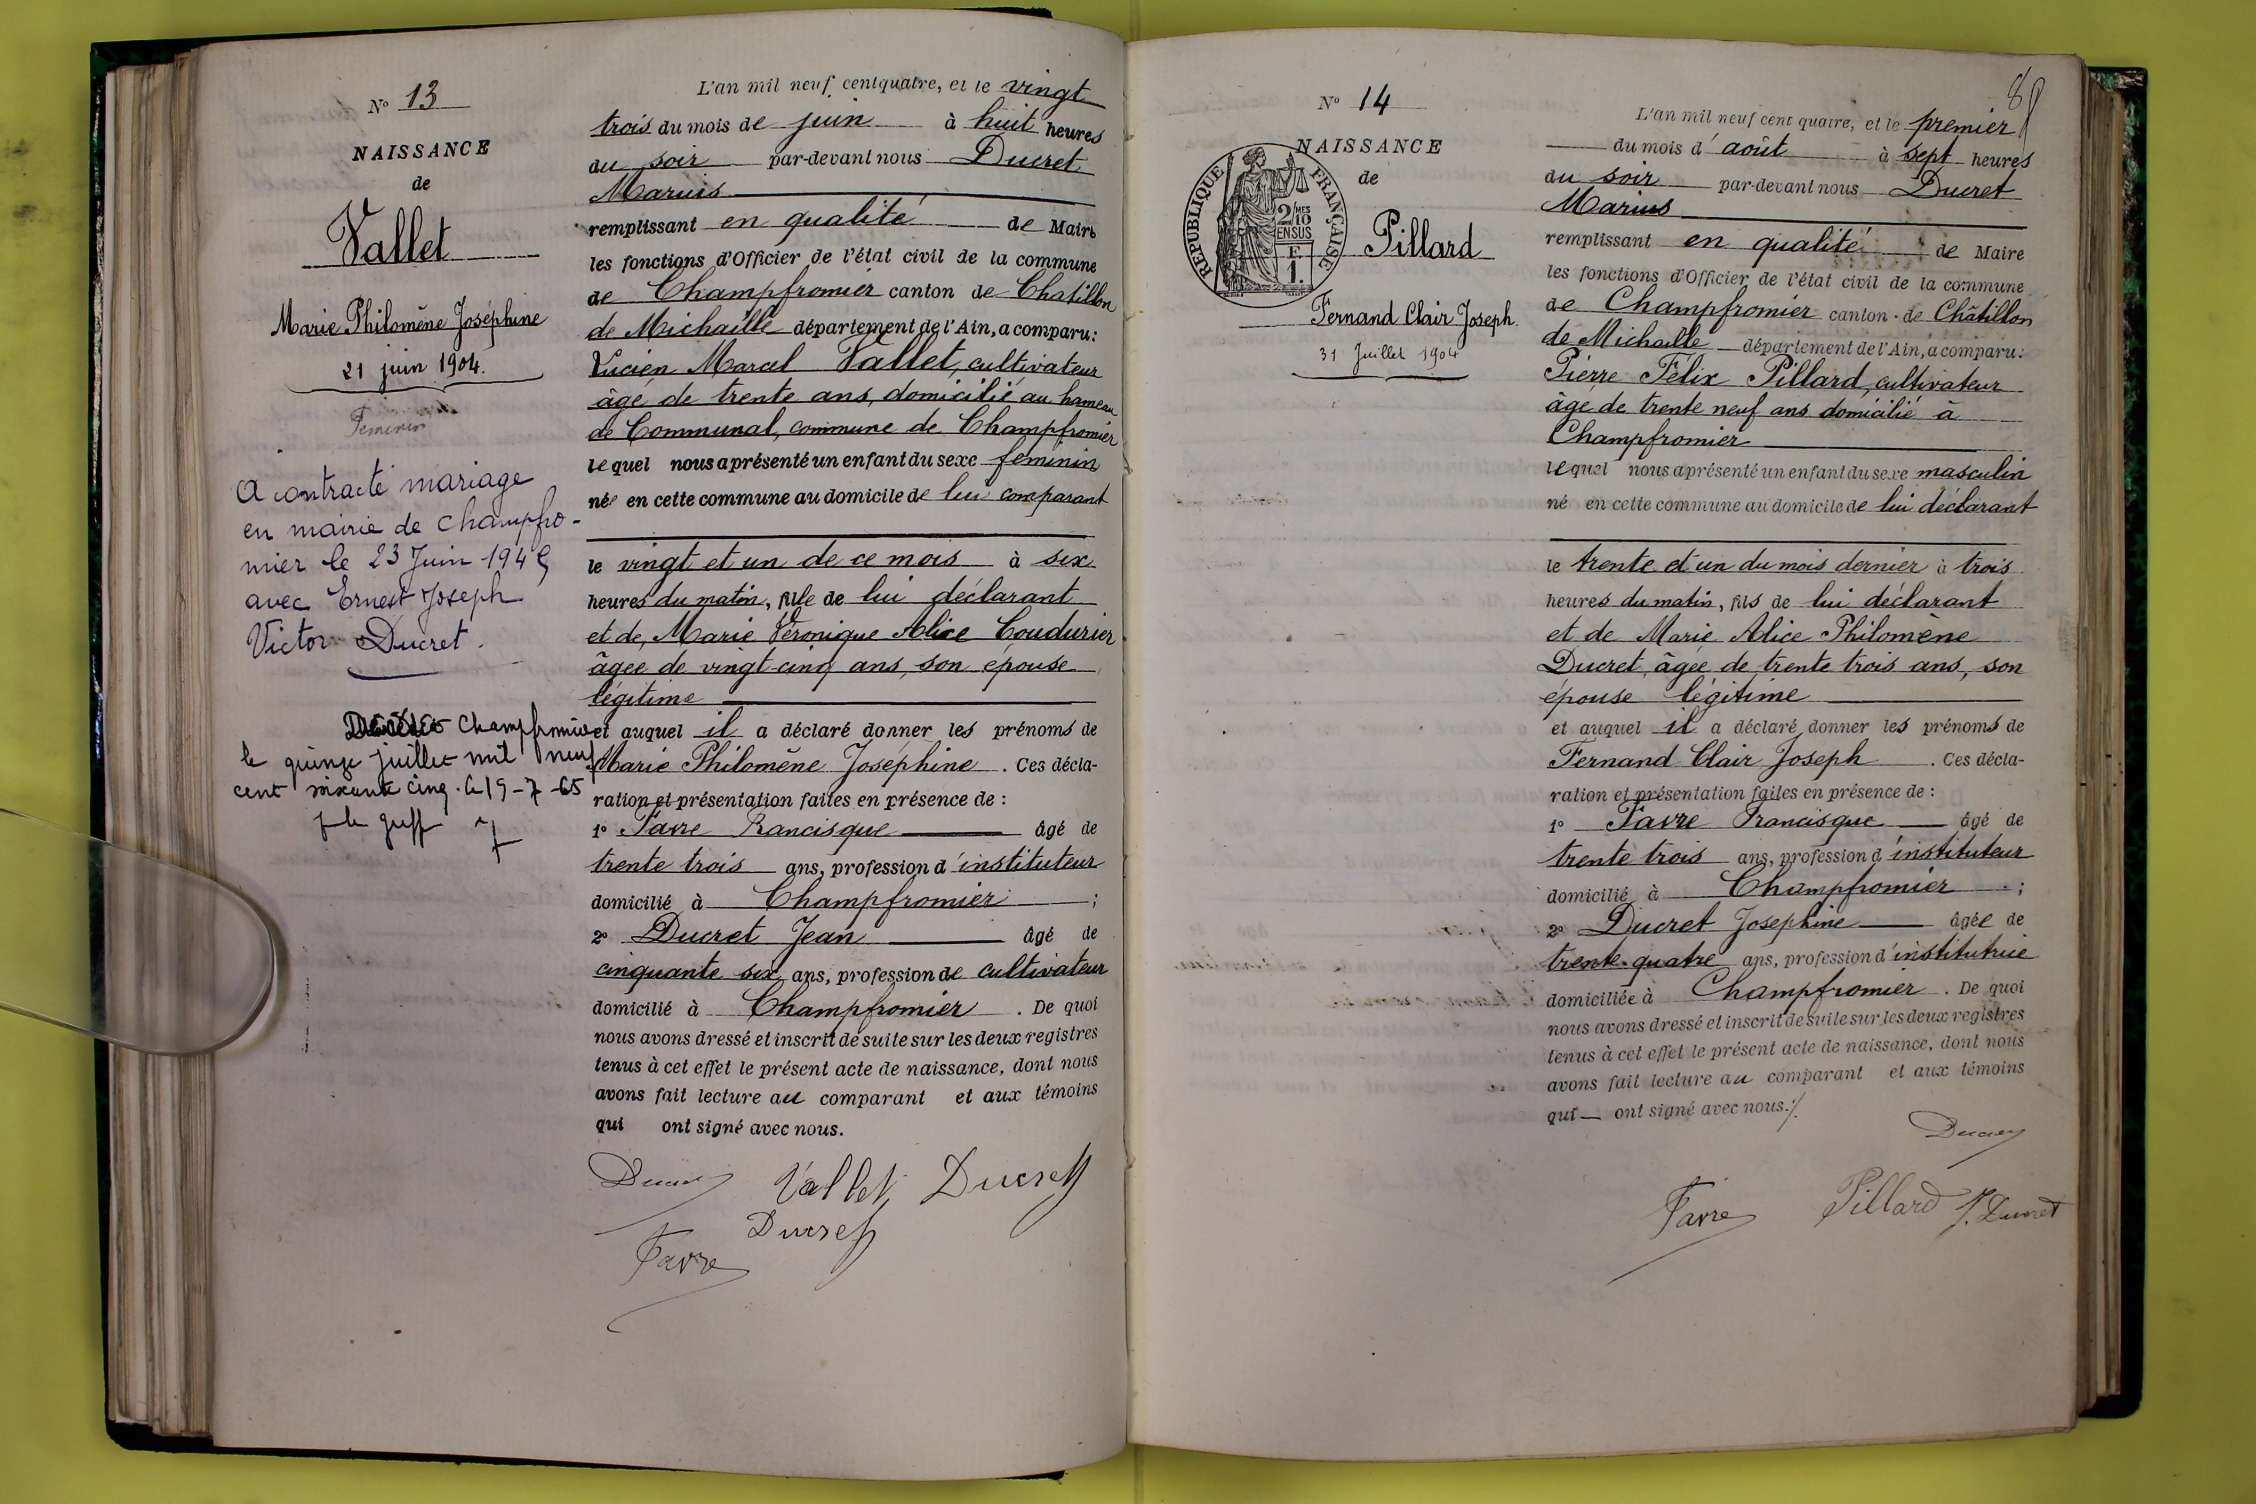 N° 13
NAISSANCE
de
Vallet
Marie Philomène Joséphine
21 juin 1904.
Féminin
A contracté mariage
en mairie de Champfro-
mier le 23 Juin 194
avec Ernest Joseph
Victor Ducret.
Champfromier
le quinze juillet mil neuf
cent soixante cinq. le 19-7-65
L'an mil neuf cent quatre, et le vingt
trois du mois de juin à huit heures
du soir par-devant nous Ducret
Marius
remplissant en qualité de Maire
les fonctions d'Officier de l'état civil de la commune
de Champfromier canton de Chatillon
de Michaille département de l'Ain, a comparu:
Lucien Marcel Vallet, cultivateur
âgé de trente ans, domicilié au hameau
de Communal, commune de Champfromier
lequel nous a présenté un enfant du sexe féminin
née en cette commune au domicile de lui comparant
le vingt et un de ce mois à six
heures du matin, fille de lui déclarant
et de, Marie Véronique Alice Coudurier
âgée de vingt-cinq ans, son épouse
légitime
et auquel il a déclaré donner les prénoms de
Marie Philomène Joséphine. Ces décla-
ration et présentation faites en présence de:
1° Favre Francisque âgé de
trente trois ans, profession d'instituteur
domicilié à Champfromier;
2° Ducret Jean âgé de
cinquante six ans, profession de cultivateur
domicilié à Champfromier. De quoi
nous avons dressé et inscrit de suite sur les deux registres
tenus à cet effet le présent acte de naissance, dont nous
avons fait lecture au comparant et aux témoins
qui ont signé avec nous.
Ducret Vallet Ducret
Ducret
Favre
N° 14
NAISSANCE
de
RÉPUBLIQUE FRANÇAISE
2/10 MES
EN SUS
F.
1.
Pillard
Fernand Clair Joseph.
31 Juillet 1904
L'an mil neuf cent quatre, et le premier
du mois d'août à sept heures
du soir par-devant nous Ducret
Marius
remplissant en qualité de Maire
les fonctions d'Officier de l'état civil de la commune
de Champfromier canton de Châtillon
de Michaille département de l'Ain, a comparu:
Pierre Félix Pillard, cultivateur
âgé de trente neuf ans domicilié à
Champfromier
lequel nous a présenté un enfant du sexe masculin
né en cette commune au domicile de lui déclarant
le trente et un du mois dernier à trois
heures du matin, fils de lui déclarant
et de Marie Alice Philomène
Ducret, âgée de trente trois ans, son
épouse légitime
et auquel il a déclaré donner les prénoms de
Fernand Clair Joseph. Ces décla-
ration et présentation faites en présence de:
1° Favre Francisque âgé de
trente trois ans, profession d'instituteur
domicilié à Champfromier;
2° Ducret Josephine âgée de
trente-quatre ans, profession d'institutrice
domiciliée à Champfromier. De quoi
nous avons dressé et inscrit de suite sur les deux registres
tenus à cet effet le présent acte de naissance, dont nous
avons fait lecture au comparant et aux témoins
qui ont signé avec nous./.
Ducret
Favre Pillard J. Ducret